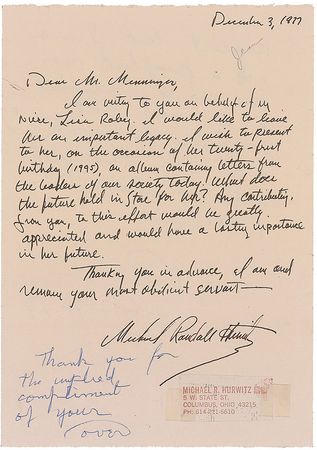 December 3, 1977
Dear Mr. Menninger,
I am writing to you on behalf of my
niece, Lisa Roley. I would like to leave
her an important legacy. I wish to present
to her, on the occasion of her twenty-first
birthday (1995), an album containing letters from
the leaders of our society today. What does
the future hold in store for her? Any contribution
from you, to this effort would be greatly
appreciated and would have a lasting importance
in her future.
Thanking you in advance, I am and
remain your most obedient servant—
Michael Randall Hurwitz
Thank you for
the implied
compliment
of your
over
MICHAEL R. HURWITZ
5 W. STATE ST.
COLUMBUS, OHIO 43215
PH: 614-221-6610